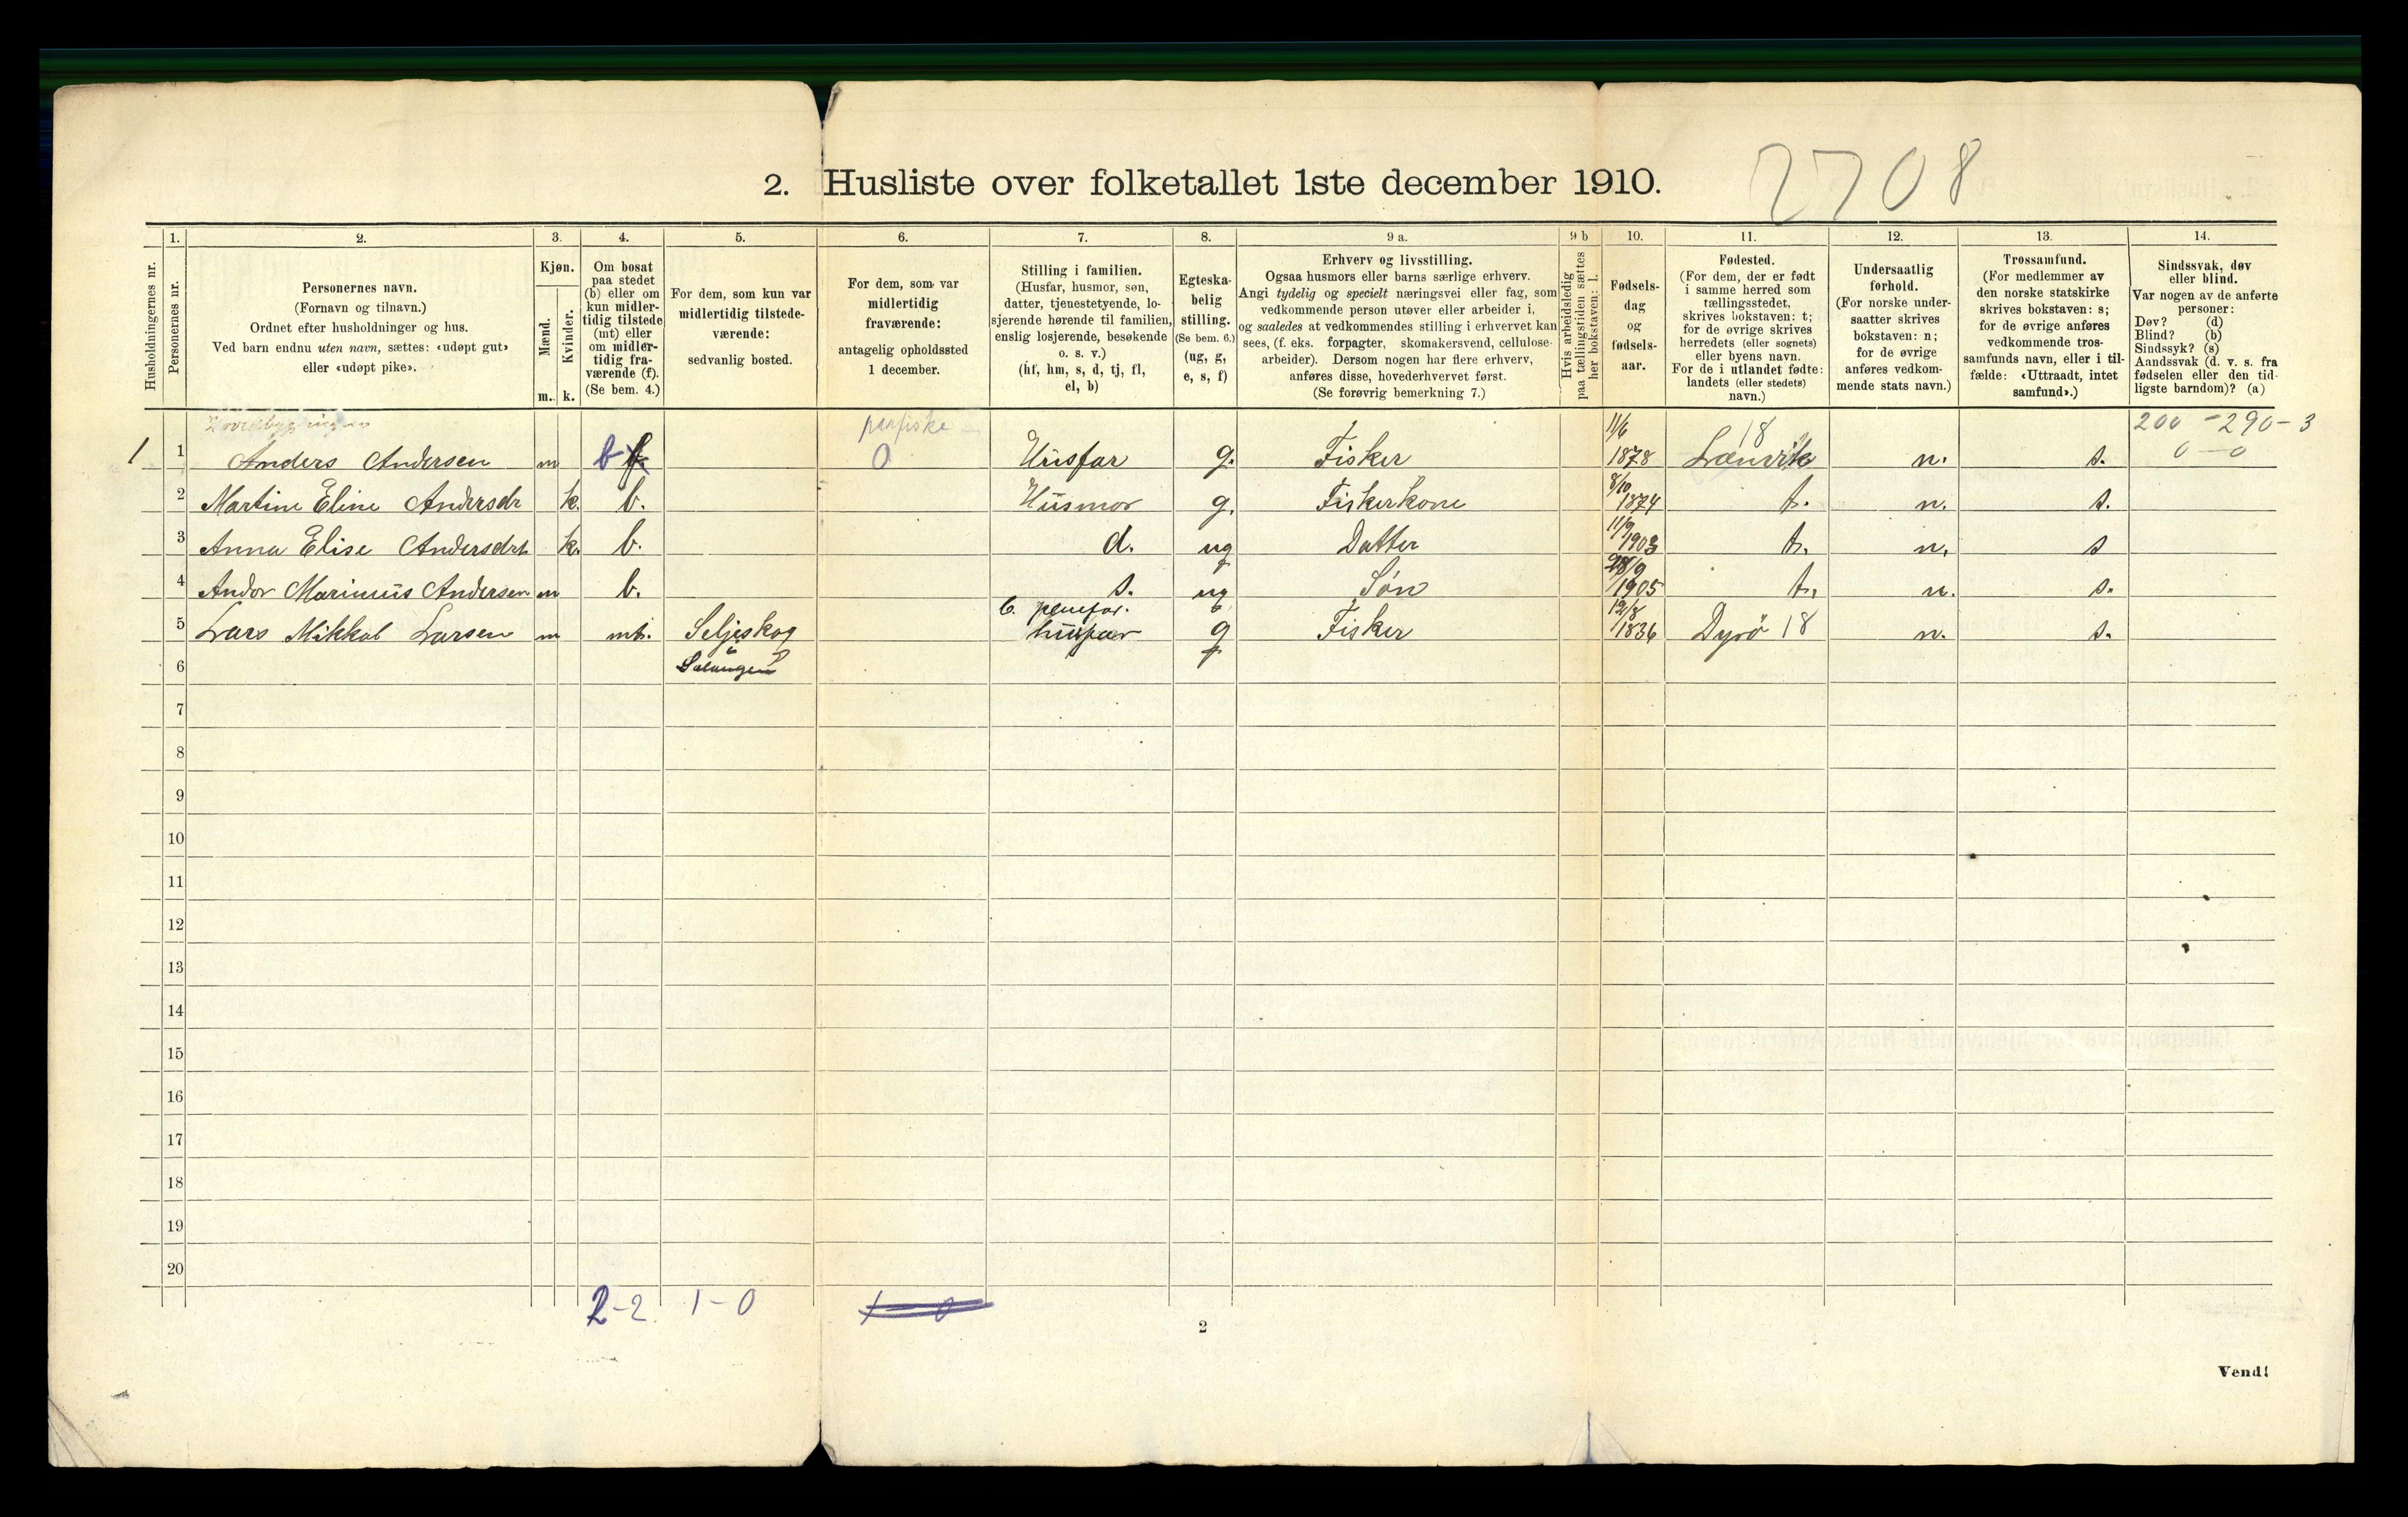 2708
2. Husliste over folketallet 1ste december 1910.
Husholdningernes nr.
1. Personernes nr.
2. Personernes navn.
(Fornavn og tilnavn.)
Ordnet efter husholdninger og hus.
Ved barn endnu uten navn, sættes: «udøpt gut»
eller «udøpt pike».
3. Kjøn.
Mænd. m.
Kvinder. k.
4. Om bosat
paa stedet
(b) eller om
kun midler-
tidig tilstede
(mt) eller
om midler-
tidig fra-
værende (f).
(Se bem. 4.)
5. For dem, som kun var
midlertidig tilstede-
værende:
sedvanlig bosted.
6. For dem, som var
midlertidig
fraværende:
antagelig opholdssted
1 december.
7. Stilling i familien.
(Husfar, husmor, søn,
datter, tjenestetyende, lo-
sjerende hørende til familien,
enslig losjerende, besøkende
o. s. v.)
(hf, hm, s, d, tj, fl,
el, b)
8. Egteska-
belig
stilling.
(Se bem. 6.)
(ug, g,
e, s, f)
9 a. Erhverv og livsstilling.
Ogsaa husmors eller barns særlige erhverv.
Angi tydelig og specielt næringsvei eller fag, som
vedkommende person utøver eller arbeider i,
og saaledes at vedkommendes stilling i erhvervet kan
sees, (f. eks. forpagter, skomakersvend, cellulose-
arbeider). Dersom nogen har flere erhverv,
anføres disse, hovederhvervet først.
(Se forøvrig bemerkning 7.)
9 b Hvis arbeidsledig
paa tællingstiden sættes
her bokstaven: l.
10. Fødsels-
dag
og
fødsels-
aar.
11. Fødested.
(For dem, der er født
i samme herred som
tællingsstedet,
skrives bokstaven: t;
for de øvrige skrives
herredets (eller sognets)
eller byens navn.
For de i utlandet fødte:
landets (eller stedets)
navn.)
12. Undersaatlig
forhold.
(For norske under-
saatter skrives
bokstaven: n;
for de øvrige
anføres vedkom-
mende stats navn.)
13. Trossamfund.
(For medlemmer av
den norske statskirke
skrives bokstaven: s;
for de øvrige anføres
vedkommende tros-
samfunds navn, eller i til-
fælde: «Uttraadt, intet
samfund».)
14. Sindssvak, døv
eller blind.
Var nogen av de anførte
personer:
Døv? (d)
Blind? (b)
Sindssyk? (s)
Aandssvak (d. v. s. fra
fødselen eller den tid-
ligste barndom)? (a)
Hovedbygningen paafiske 11/6 18 200 - 290 - 3
1 1 Anders Andersen m b f 0 Husfar g. Fisker 1878 Lænvik n. s. 0 - 0
2 Martine Eline Andersdr k. b. Husmor g. Fiskerkone 8/10 1874 t. n. s.
3 Anna Elise Andersdrt k. b. d. ug Datter 11/9 1903 t. n. s
4 Andor Marinius Andersen m b. s. ug Søn 28/9 1905 t. n. s.
5 Lars Mikkal Larsen m mt. Seljeskog b. husfar g Fisker 12/8 1836 Dyrö 18 n. s.
6 Salangen
7
8
9
10
11
12
13
14
15
16
17
18
19
20
2-2 1-0 1-0
2
Vend!